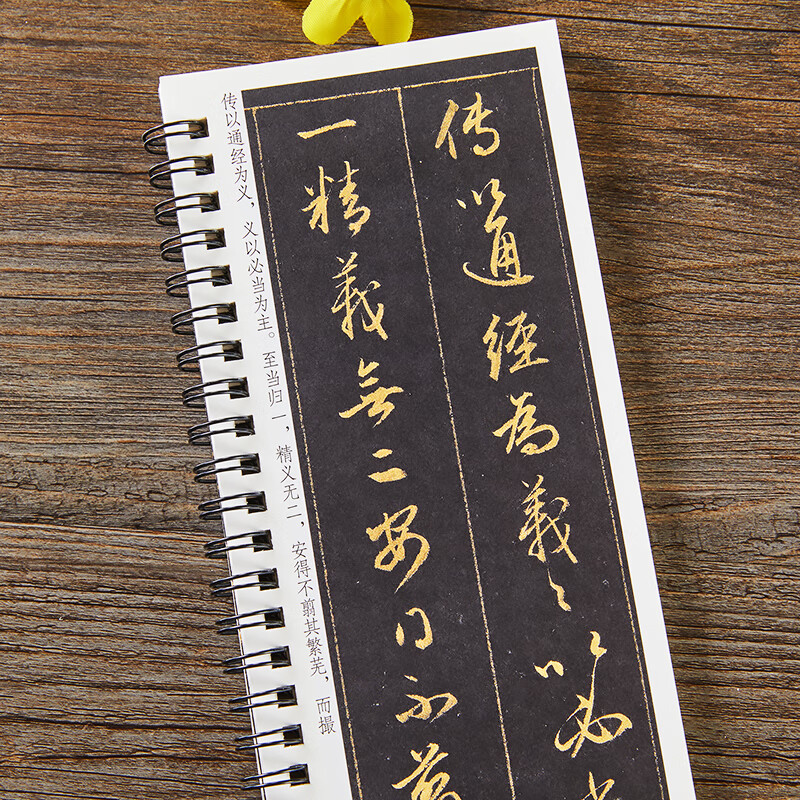 傳以通經為義〻以必
一精義無二安得不
传以通经为义，义以必当为主。至当归一，精义无二，安得不翦其繁芜，而撮